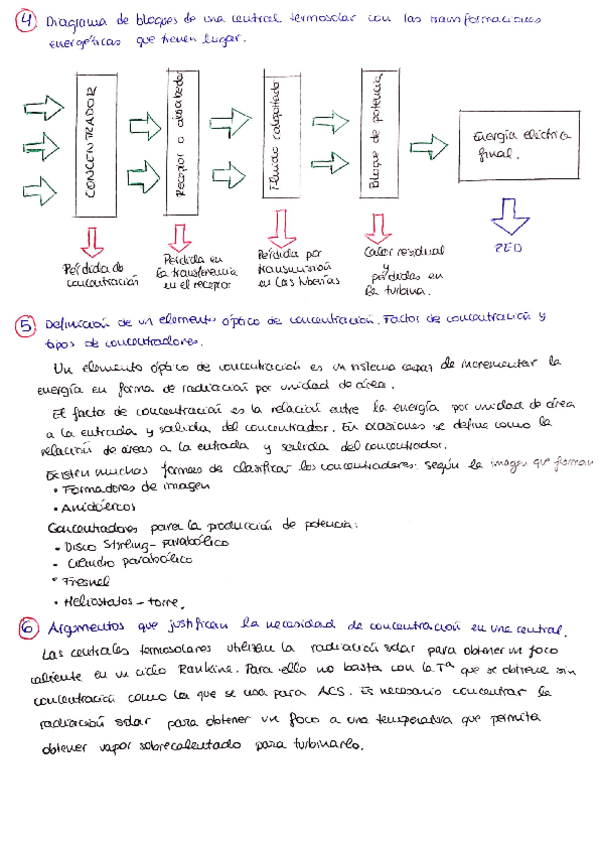 4 Diagrama de bloques de una central termosolar con las transformaciones
energéticas que tienen lugar.
CONCENTRADOR
Receptor o absorbedor
Fluido calopotado
Bloque de potencia
Energía eléctrica
final.
Pérdida de
concentración
Pérdida en
la transferencia
en el receptor
Pérdida por
transmisión
en las tuberías
Calor residual
y
pérdidas en
la turbina.
RED
5 Definición de un elemento óptico de concentración. Factor de concentración y
tipos de concentradores.
Un elemento óptico de concentración es un sistema capaz de incrementar la
energía en forma de radiación por unidad de área.
El factor de concentración es la relación entre la energía por unidad de área
a la entrada y salida del concentrador. En ocasiones se define como la
relación de áreas a la entrada y salida del concentrador.
Existen muchas formas de clasificar los concentradores: según la imagen que forman
• Formadores de imagen
• Anidólicos
Concentradores para la producción de potencia:
- Disco Stirling - parabólico
- Cilindro parabólico
• Fresnel
• Heliostatos - torre.
6 Argumentos que justifican la necesidad de concentración en una central.
Las centrales termosolares utilizan la radiación solar para obtener un foco
caliente en un ciclo Rankine. Para ello no basta con la Tª que se obtiene sin
concentración como la que se usa para ACS. Es necesario concentrar la
radiación solar para obtener un foco a una temperatura que permita
obtener vapor sobrecalentado para turbinarlo.